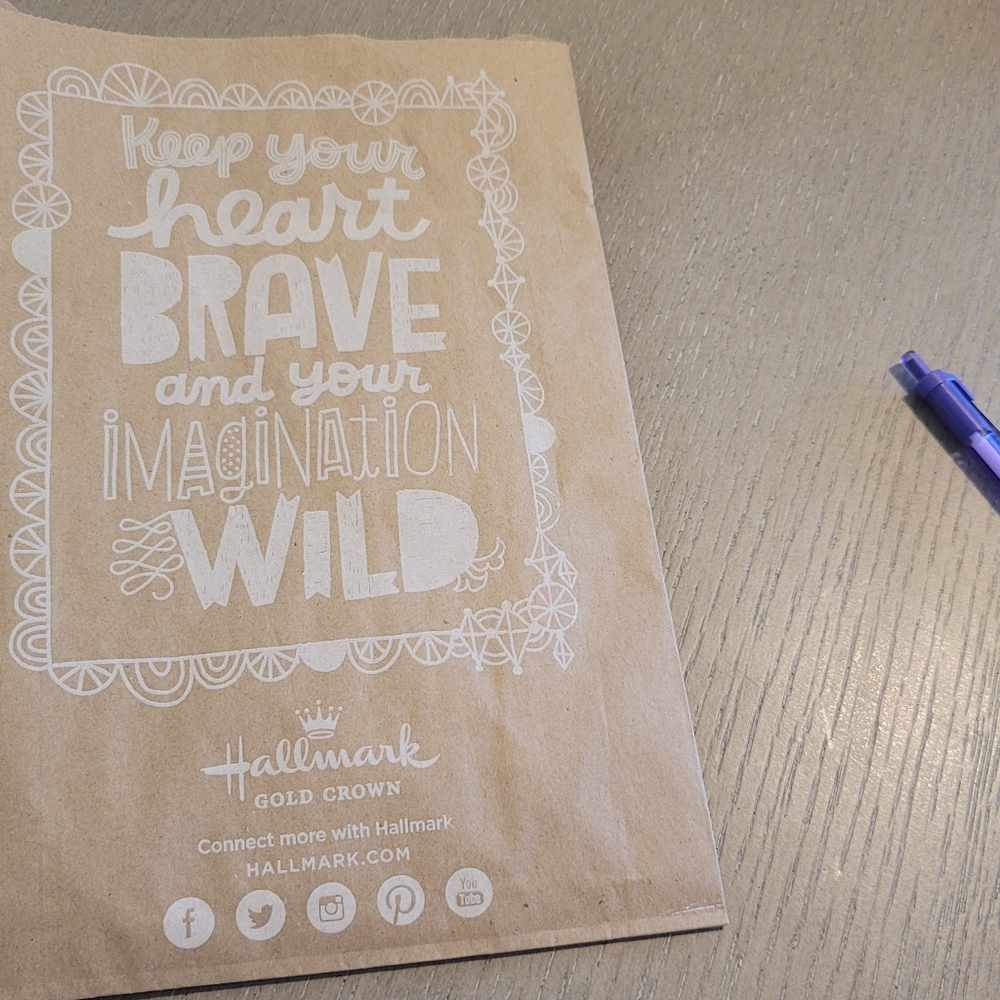 Keep your
heart
BRAVE
and your
iMAgiNAtiON
WiLD
Hallmark
GOLD CROWN
Connect more with Hallmark
HALLMARK.COM
f
You
Tube